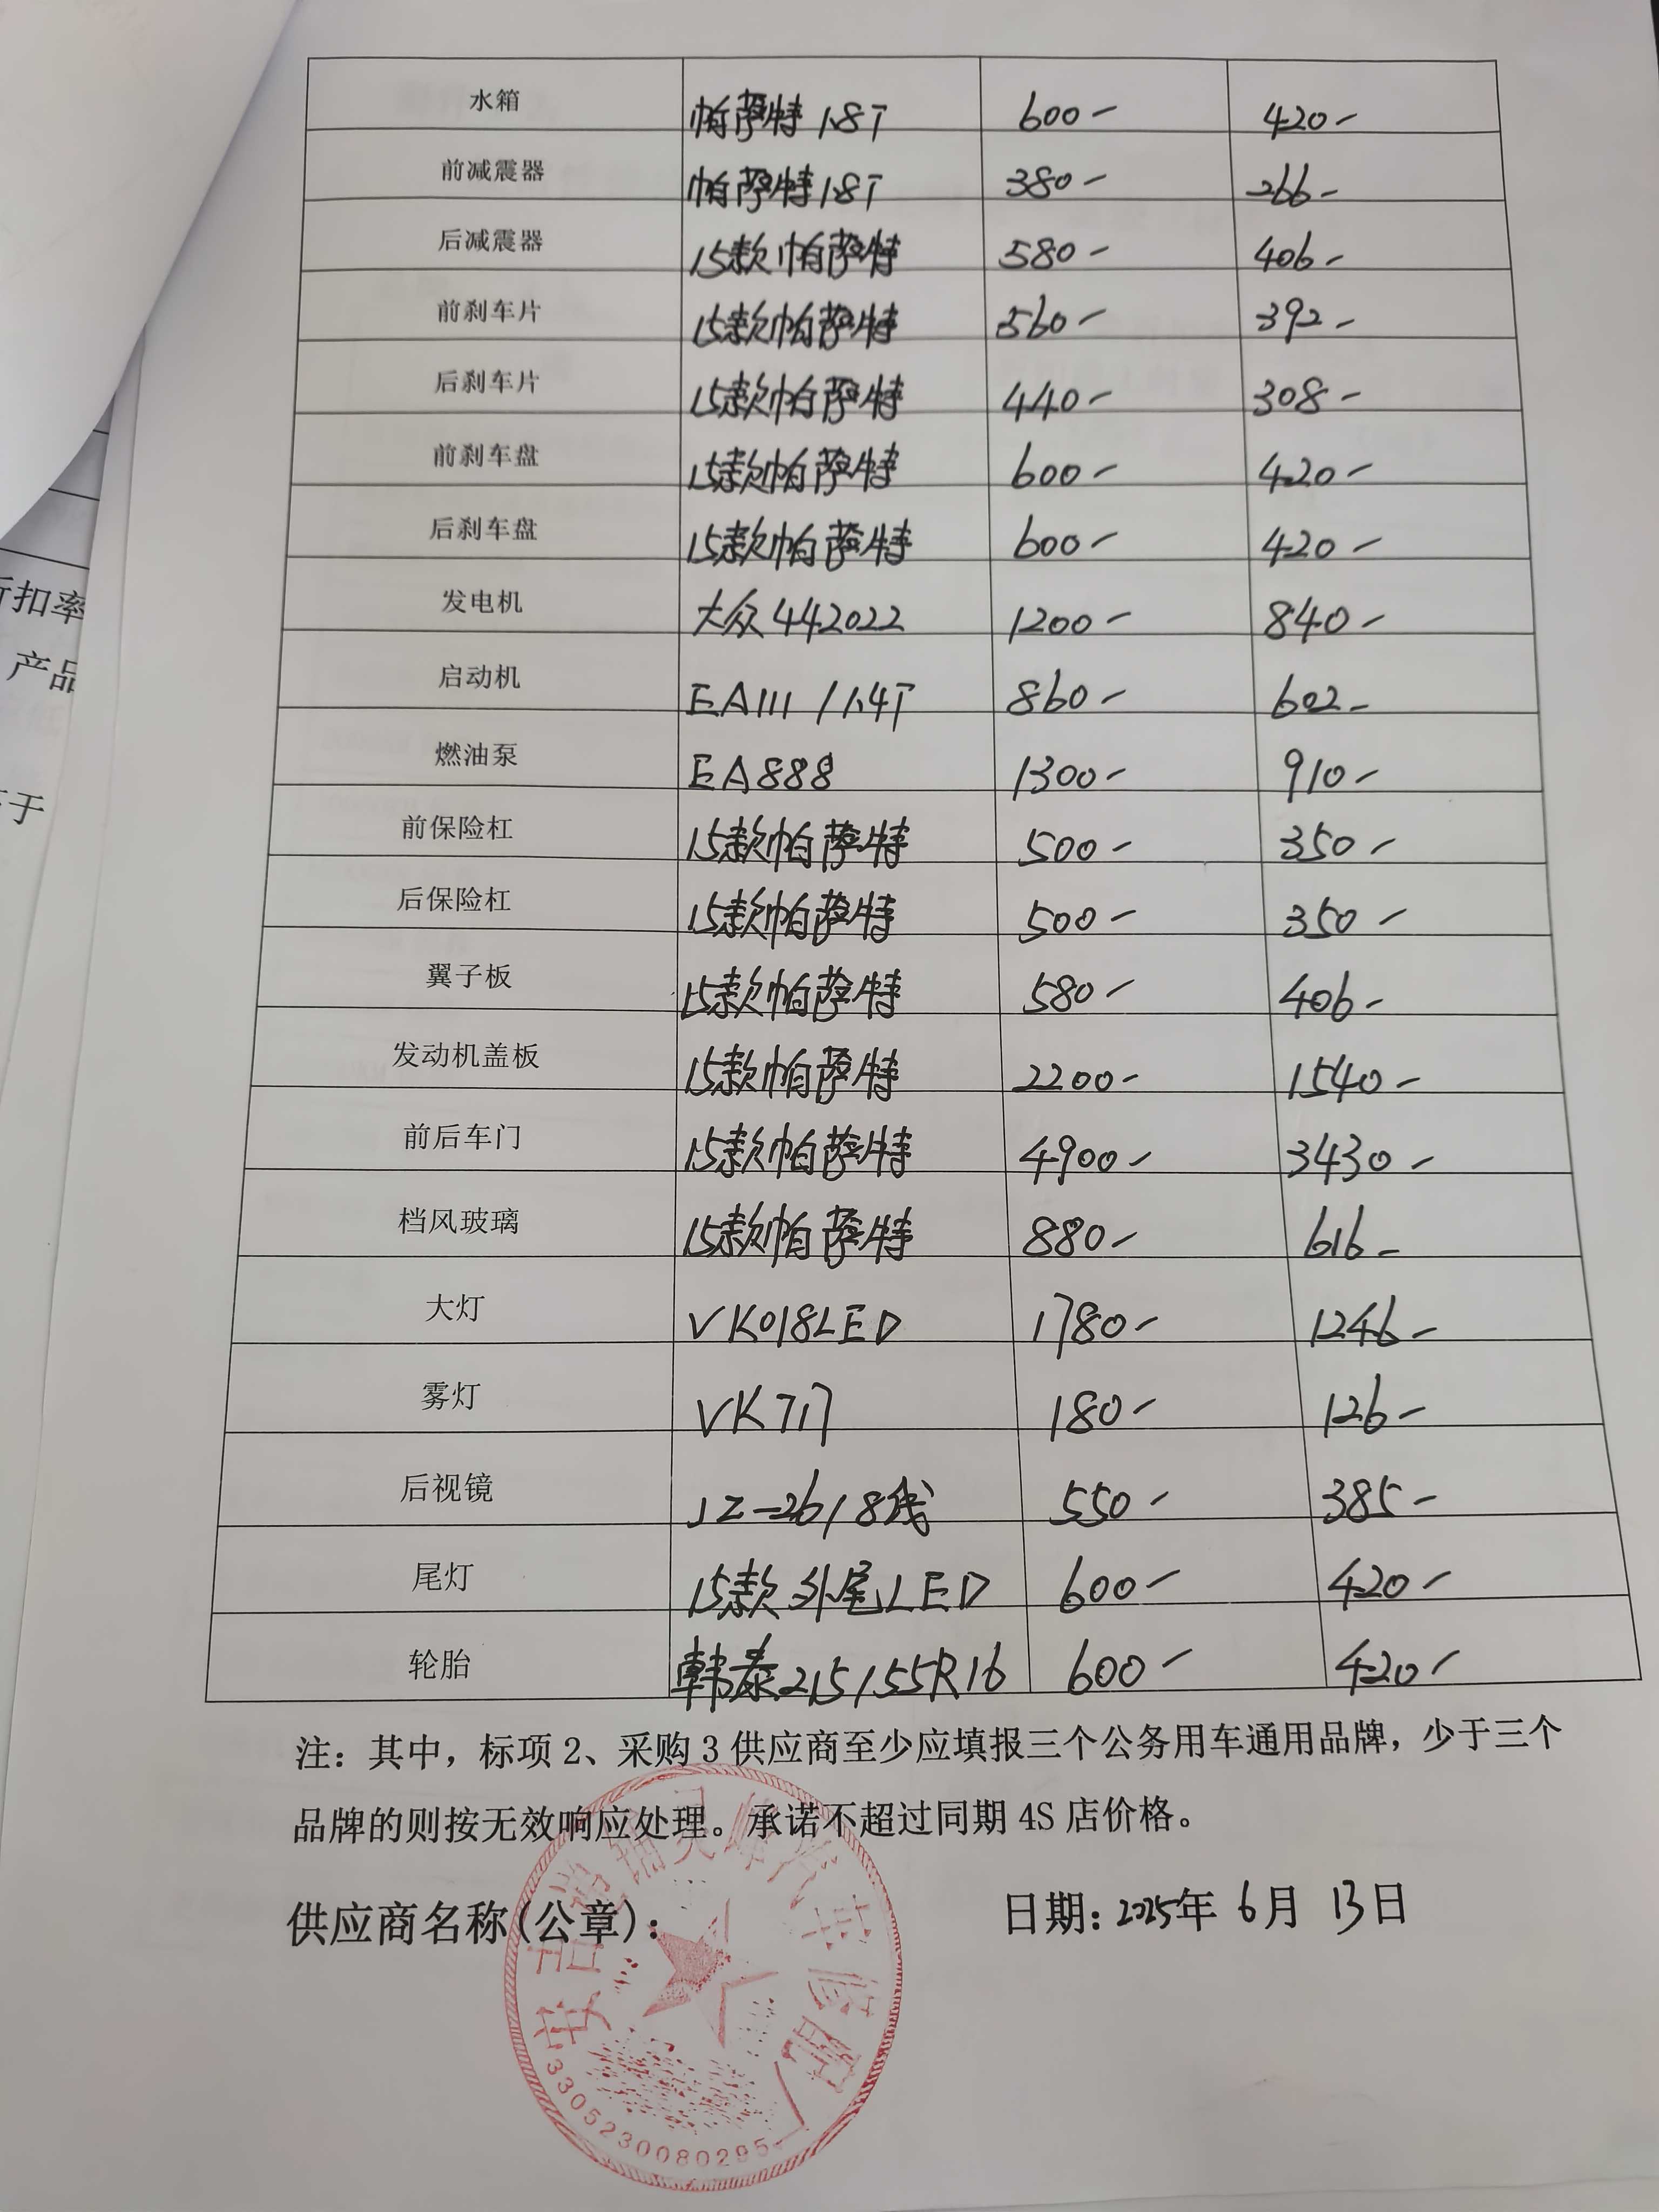 水箱 帕萨特 1.8T 600- 420-
前减震器 帕萨特 1.8T 380- 266-
后减震器 15款帕萨特 580- 406-
前刹车片 15款帕萨特 560- 392-
后刹车片 15款帕萨特 440- 308-
前刹车盘 15款帕萨特 600- 420-
后刹车盘 15款帕萨特 600- 420-
发电机 大众442022 1200- 840-
启动机 EA111/1.4T 860- 602-
燃油泵 EA888 1300- 910-
前保险杠 15款帕萨特 500- 350-
后保险杠 15款帕萨特 500- 350-
翼子板 15款帕萨特 580- 406-
发动机盖板 15款帕萨特 2200- 1540-
前后车门 15款帕萨特 4900- 3430-
档风玻璃 15款帕萨特 880- 616-
大灯 VK018LED 1780- 1246-
雾灯 VK717 180- 126-
后视镜 JZ-26/8线 550- 385-
尾灯 15款外尾LED 600- 420-
轮胎 韩泰215/55R16 600- 420-
注：其中，标项2、采购3供应商至少应填报三个公务用车通用品牌，少于三个
品牌的则按无效响应处理。承诺不超过同期4S店价格。
供应商名称(公章)： 日期：2025年6月13日
安吉递铺灵峰汽车修配厂
3305230080295
扣率
产品
于